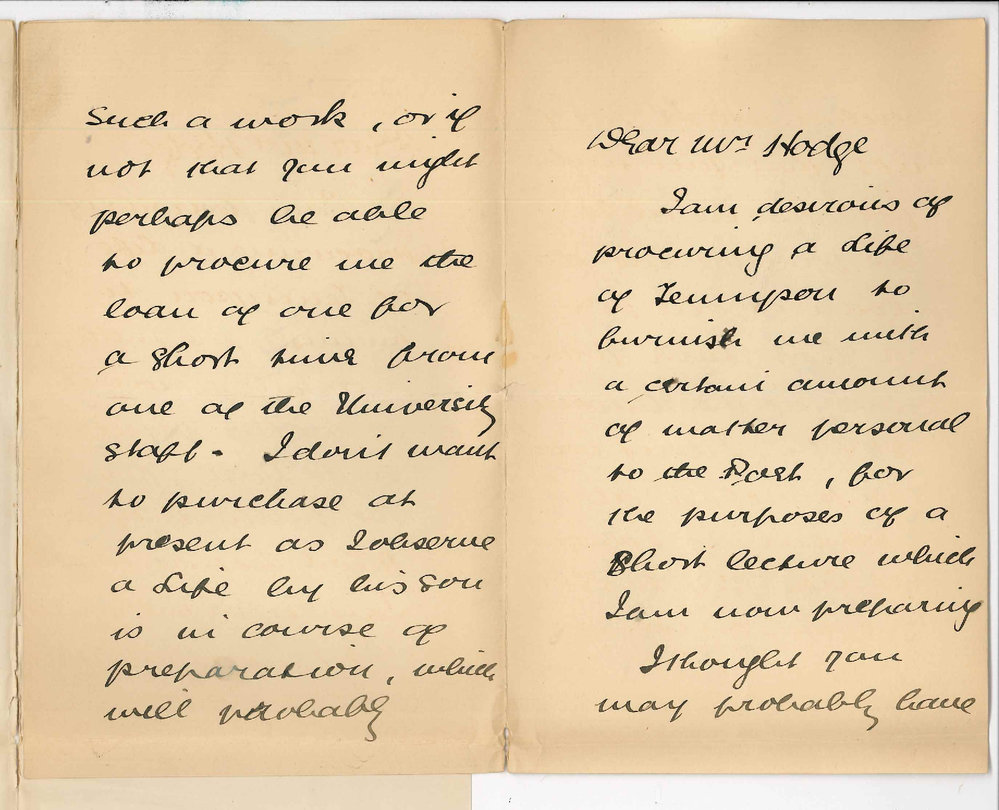 Dear Mrs Hodge
I am desirous of
procuring a Life
of Tennyson to
furnish me with
a certain amount
of matter personal
to the Poet, for
the purposes of a
Short lecture which
I am now preparing
I thought you
may probably have
such a work, or if
not that you might
perhaps be able
to procure me the
loan of one for
a short time from
one of the University
staff. I don't want
to purchase at
present as I observe
a Life by his son
is in course of
preparation, which
will probably